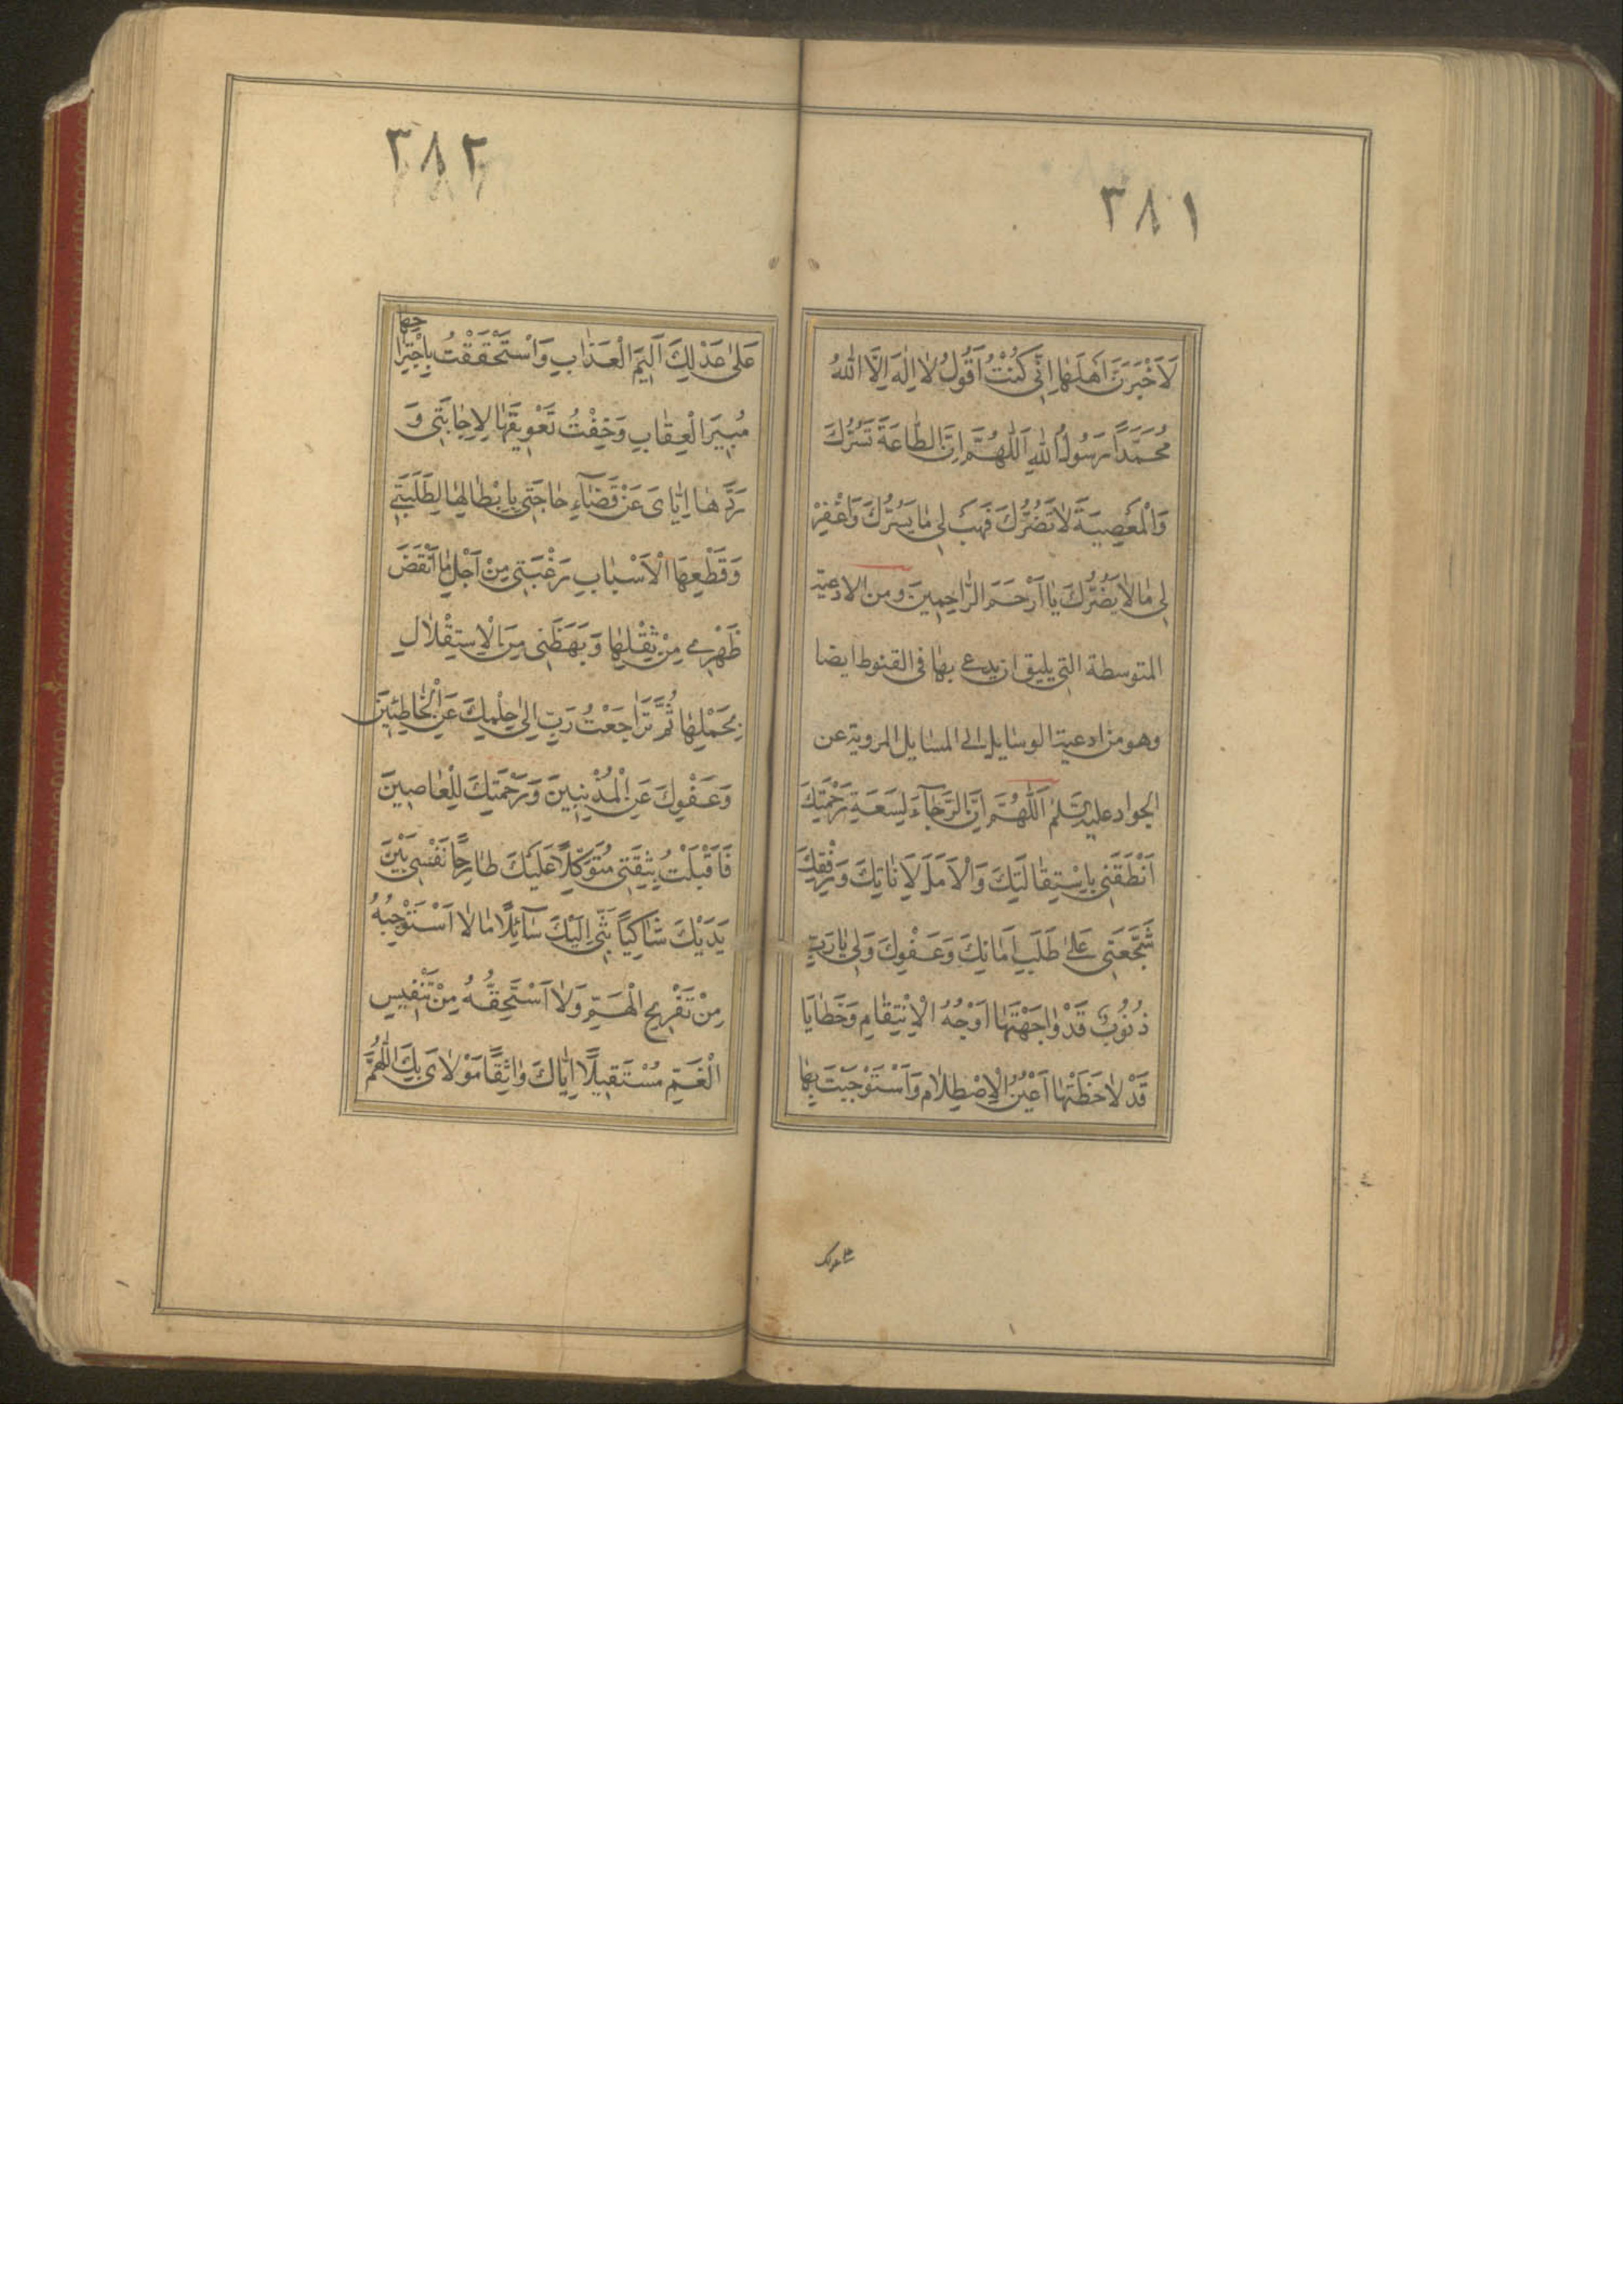 ٣٨١
لَاَخْبَرَنَّ اَهْلَهٰا اِنّٖى كُنْتُ اَقُولُ لٰا اِلٰهَ اِلَّا اللّٰهُ
مُحَمَّدًا رَسُولُ اللّٰهِ اَللّٰهُمَّ اِنَّ الطّٰاعَةَ تَسُرُّكَ
وَالْمَعْصِيَةَ لٰا تَضُرُّكَ فَهَبْ لٖى مٰا يَسُرُّكَ وَاغْفِرْ
لٖى مٰا لٰا يَضُرُّكَ يٰا اَرْحَمَ الرّٰاحِمٖينَ ومن الادعية
المتوسطة التي يليق ان يدعى بها في القنوط ايضا
وهو من ادعية الوسايل الى المسايل المروية عن
الجواد عليه السّلم اَللّٰهُمَّ اِنَّ الرَّجٰآءَ لِسَعَةِ رَحْمَتِكَ
اَنْطَقَنٖى بِاسْتِقٰالَتِكَ وَالْاَمَلَ لِاَنٰاتِكَ وَرِفْقِكَ
شَجَّعَنٖى عَلىٰ طَلَبِ اَمٰانِكَ وَعَفْوِكَ وَلٖى يٰا رَبِّ
ذُنُوبٌ قَدْ وٰاجَهْتَهٰا اَوْجُهُ الْاِنْتِقٰامِ وَخَطٰايٰا
قَدْ لٰاحَظَتْهٰا اَعْيُنُ الْاِصْطِلٰامِ وَاَسْتَوْجَبْتُ بِهٰا
٣٨٢
عَلىٰ عَدْلِكَ اَلٖيمَ الْعَذٰابِ وَاسْتَحْقَقْتُ بِاجْتِرٰا
حِهٰا
مُبٖيرَ الْعِقٰابِ وَخِفْتُ تَعْوٖيقَهٰا لِاِجٰابَتٖى وَ
رَدَّهٰا اِيّٰاىَ عَنْ قَضٰآءِ حٰاجَتٖى بِاِبْطٰالِهٰا لِطَلِبَتٖى
وَقَطْعِهَا الْاَسْبٰابِ رَغْبَتٖى مِنْ اَجْلِ مٰا اَنْقَضَ
ظَهْرٖى مِنْ ثِقْلِهٰا وَبَهَظَنٖى مِنَ الْاِسْتِقْلٰالِ
بِحَمْلِهٰا ثُمَّ تَرٰاجَعْتُ رَبِّ اِلىٰ حِلْمِكَ عَنِ الْخٰاطِئٖينَ
وَعَفْوِكَ عَنِ الْمُذْنِبٖينَ وَرَحْمَتِكَ لِلْعٰاصٖينَ
فَاَقْبَلْتُ بِثِقَتٖى مُتَوَكِّلًا عَلَيْكَ طٰارِحًا نَفْسٖى بَيْنَ
يَدَيْكَ شٰاكِيًا بَثّٖى اِلَيْكَ سٰآئِلًا مٰا لٰا اَسْتَوْجِبُهُ
مِنْ تَفْرٖيحِ الْهَمِّ وَلٰا اَسْتَحِقُّهُ مِنْ تَنْفٖيسِ
الْغَمِّ مُسْتَقٖيلًا اِيّٰاكَ وٰاثِقًا مَوْلٰاىَ بِكَ اَللّٰهُمَّ